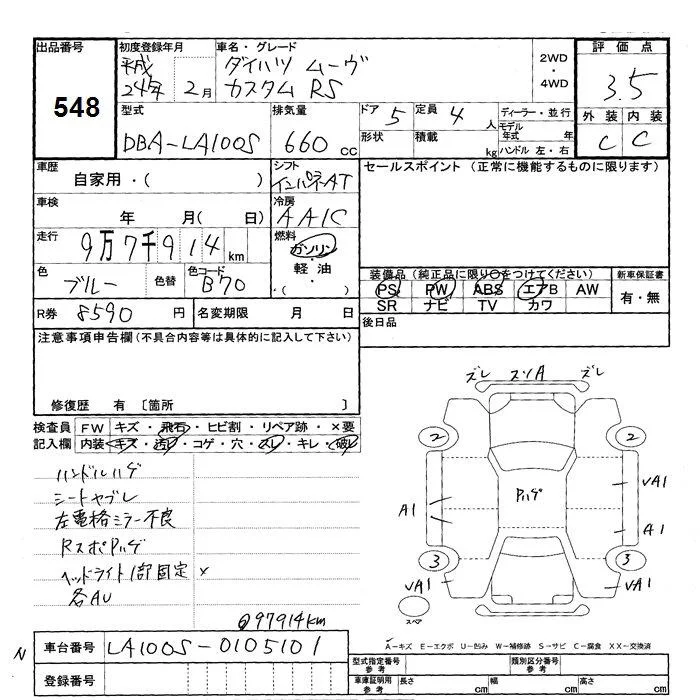 出品番号 初度登録年月 車名・グレード 2WD・4WD 評価点
548 平成24年 2月 ダイハツ ムーヴ カスタム RS 3.5
型式 排気量 ドア 5 定員 4人 ディーラー・並行 外装 内装
DBA-LA100S 660cc 形状 積載 kg モデル年式 年 ハンドル 左・右 C C
車歴 自家用・( ) シフト インパネAT セールスポイント (正常に機能するものに限ります)
車検 年 月( 日) 冷房 AAIC
走行 9万7千914km 燃料 ガソリン・軽油・( )
色 ブルー 色替 色コード B70
装備品(純正品に限り○をつけてください) 新車保証書
PS PW ABS エアB AW 有・無
SR ナビ TV カワ
R券 8590円 名変期限 月 日 後日品
注意事項申告欄(不具合内容等は具体的に記入して下さい)
修復歴 有 〔箇所 〕
検査員記入欄 FW キズ・飛石・ヒビ割・リペア跡・×要
内装 キズ・汚れ・コゲ・穴・スレ・キレ・破れ
ハンドルハゲ
シートヤブレ
左電格ミラー不良
RスポPハゲ
ヘッドライト1部固定 ×
各AU
@97914km
ズレ スソA ズレ
2 2
Pハゲ VA1
A1 A1
3 3
VA1 VA1
スペア
A-キズ E-エクボ U-凹み W-補修跡 S-サビ C-腐食 XX-交換済
N 車台番号 LA100S-0105101
登録番号
型式指定番号 参考 類別区分番号 参考
車庫証明用 参考 長さ cm 幅 cm 高さ cm